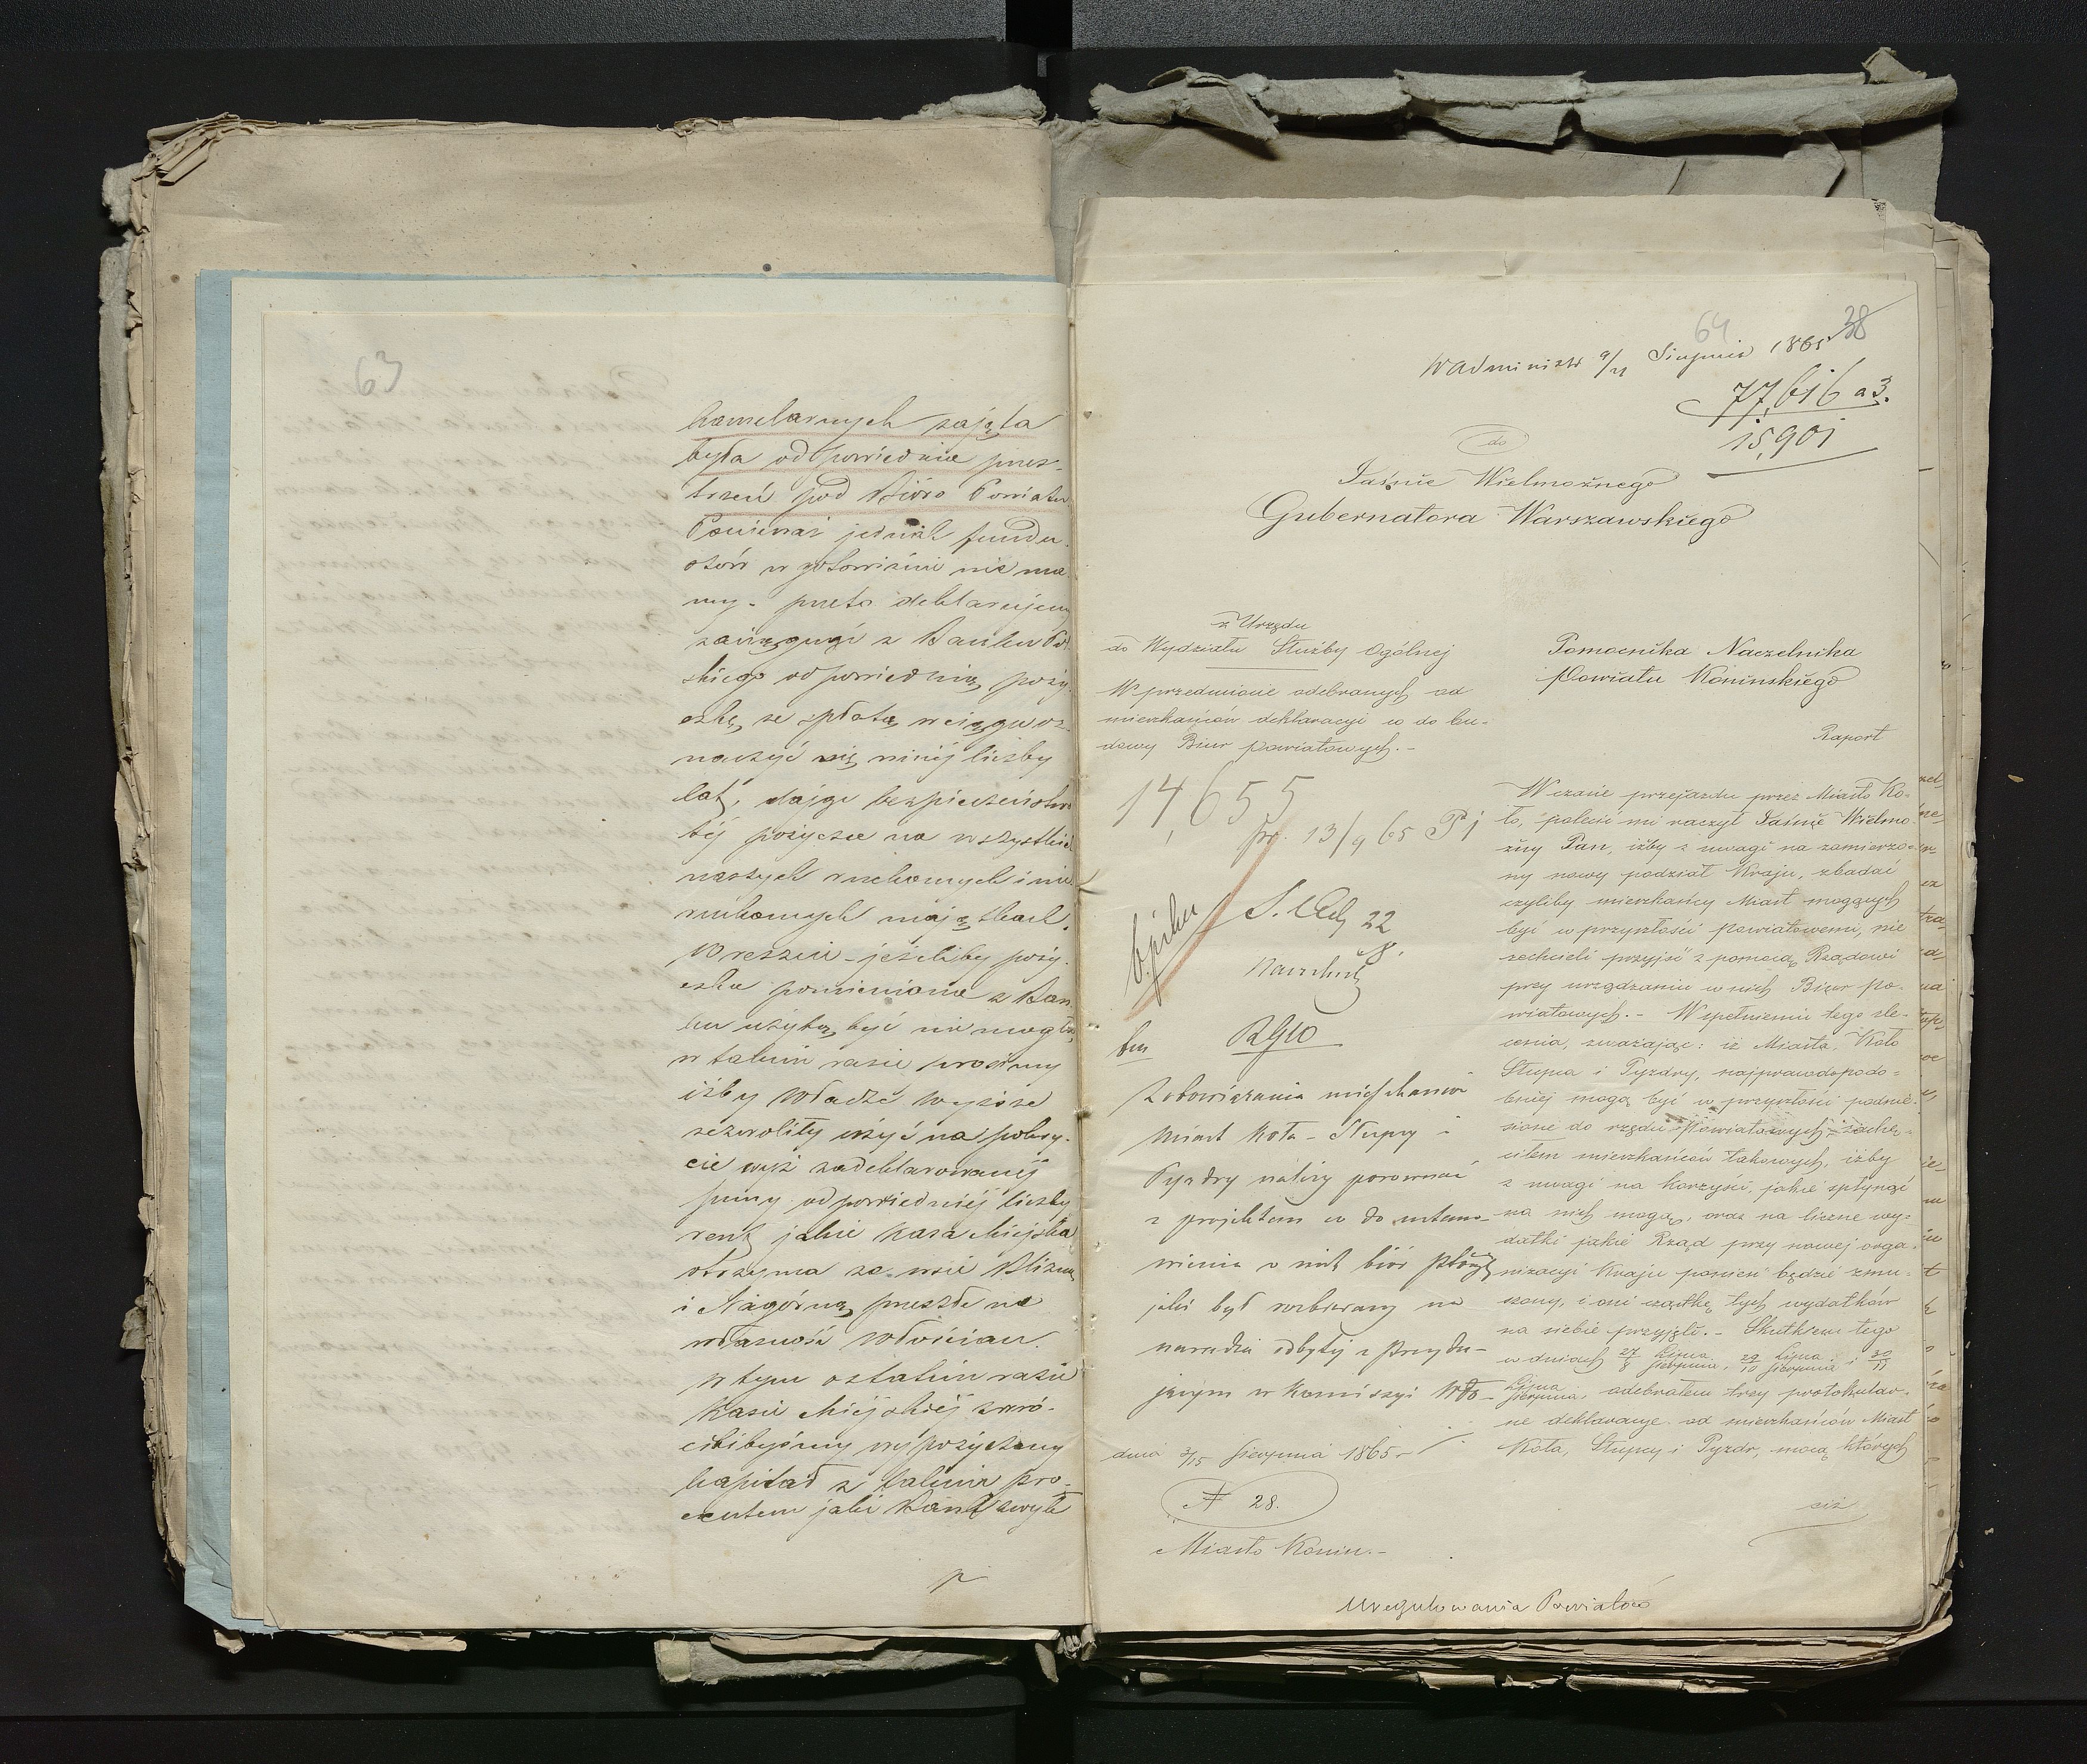 63
kancelarnych zajęta
była odpowiednia przes-
trzeń pod Biuro Powiatu
Ponieważ jednak fundu-
szów w gotowiźnie nie ma
my - przeto deklarujemy
zaciągnąć z Banku Pol
skiego odpowiednią poży
czkę, ze spłatą w ciągu oz
naczyć się winiéj liczby
lat, dając bezpieczeństwo
téj pożyczce na wszystkich
naszych ruchomych i nie
ruchomych majątkach.
Wreszcie - jeżeliby poży-
czka pomieniona z Ban
ku użytą być nie mogła,
w takim razie prosimy
iżby Władze wyższe
zezwoliły użyć na pokry-
cie wyż zadeklarowanéj
sumy odpowiedniéj liczby
rent jakie Kasa Miejska
otrzyma za wsie Blizna
i Nagórna, przeszłe na
własność Włościan.
W tym ostatnim razie
Kasie Miejskiéj zwró-
cilibyśmy wypożyczony
kapitał z takim pro-
centem jaki Bank zwykle
64
38
W Administr 9/21 Sierpnia 1865
77,616 a 3.
15,901
do
Jaśnie Wielmożnego
Gubernatora Warszawskiego
z Urzędu
do Wydziału Służby Ogólnej
W przedmiocie odebranych od
mieszkańców deklaracyi co do bu-
dowy Biur powiatowych.-
14,655
pr. 13/9 65 P i
22
bm
Zobowiązania mieszkańców
Miast Koła - Słupcy i
Pyzdry należy porównać
z projektem co do
w nich biór
jaki był rozbierany na
naradzie odbytéj z Przydu-
jącym w Komissyi Wło-
dnia 3/15 Sierpnia 1865 r
N 28.
Miasto Konin.-
Pomocnika Naczelnika
Powiatu Konińskiego
Raport
W czasie przejazdu przez Miasto Ko-
ło, polecić mi raczył Jaśnie Wielmo-
żny Pan, iżby z uwagi na zamierzo-
ny nowy podział Kraju, zbadać
czyliby mieszkańcy Miast mogących
być w przyszłości powiatowemi, nie
zechcieli przyjść z pomocą Rządowi
przy urządzaniu w nich Biur po-
wiatowych.- W spełnieniu tego zle-
cenia, zważając: iż Miasta Koło
Słupca i Pyzdry, najprawdopodo-
bniej mogą być w przyszłości podnie-
sione do rzędu powiatowych - zachę-
ciłem mieszkańców takowych, iżby
z uwagi na korzyści, jakie spłynąć
na nich mogą, oraz na liczne wy-
datki jakie Rząd przy nowej orga-
nizacyi Kraju ponieść będzie zmu-
szony, i oni cząstkę tych wydatków
na siebie przyjęli.- Skutkiem tego
w dniach 27 Lipca/8 Sierpnia, 29 Lipca/10 Sierpnia i 30/11
Lipca/Sierpnia, odebrałem trzy protokular-
ne deklaracye od mieszkańców Miast
Koła, Słupcy i Pyzdr, mocą których
ciż
Uregulowania Powiatów